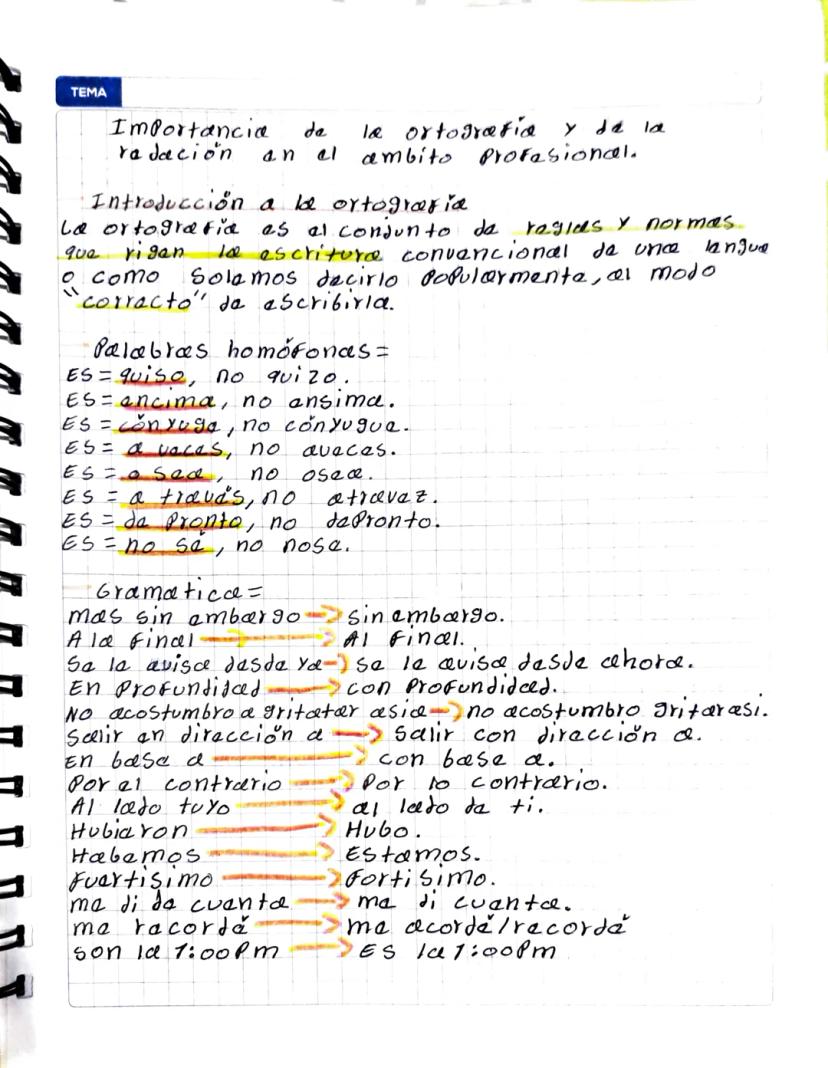 TEMA
Importancia de la ortografía y de la
redación en el ambito Profesional.
Introducción a la ortografía
La ortografía es el conjunto de reglas y normas
que rigen la escritura convencional de una lengua
o como solemos decirlo popularmente, el modo
"correcto" de escribirla.
Palabras homófonas=
ES = quiso, no quizo.
ES = encima, no ensima.
ES = cónyuge, no cónyugue.
ES = a veces, no aveces.
ES = o sea, no osea.
ES = a través, no atravez.
ES = de Pronto, no dePronto.
ES = no sé, no nose.
Gramatica=
mas sin embargo → sin embargo.
A la final → Al final.
Se le avisa desde ya → se le avisa desde ahora.
En Profundidad → con Profundidad.
NO acostumbro a gritatar asia → no acostumbro gritarasi.
Salir en dirección a → Salir con dirección a.
En base a → con base a.
Por el contrario → Por lo contrario.
Al lado tuyo → al lado de ti.
Hubieron → Hubo.
Habemos → Estamos.
Fuertisimo → Fortisimo.
me di de cuenta → me di cuenta.
me recordé → me acordé/recordé
son la 1:00Pm → Es la 1:00Pm